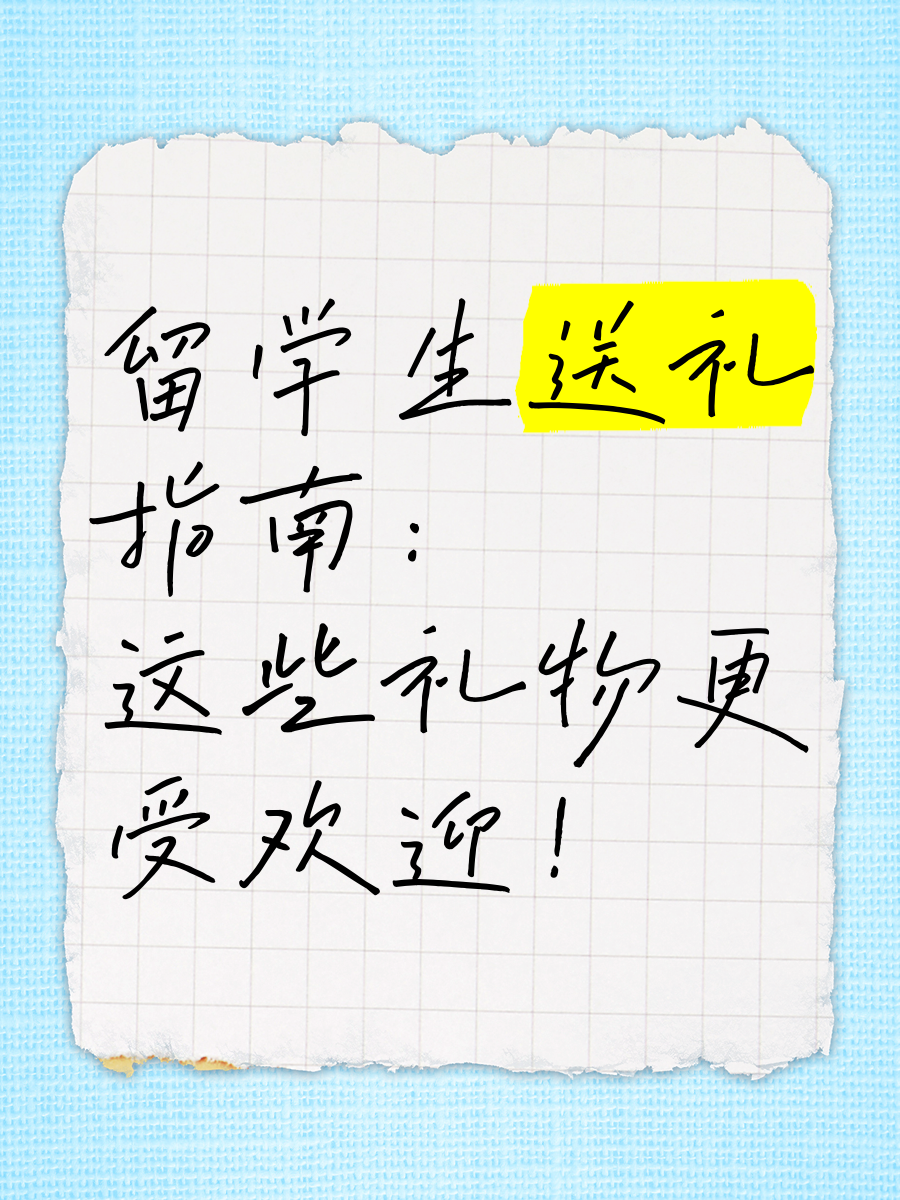 留学生送礼
指南：
这些礼物更
受欢迎！